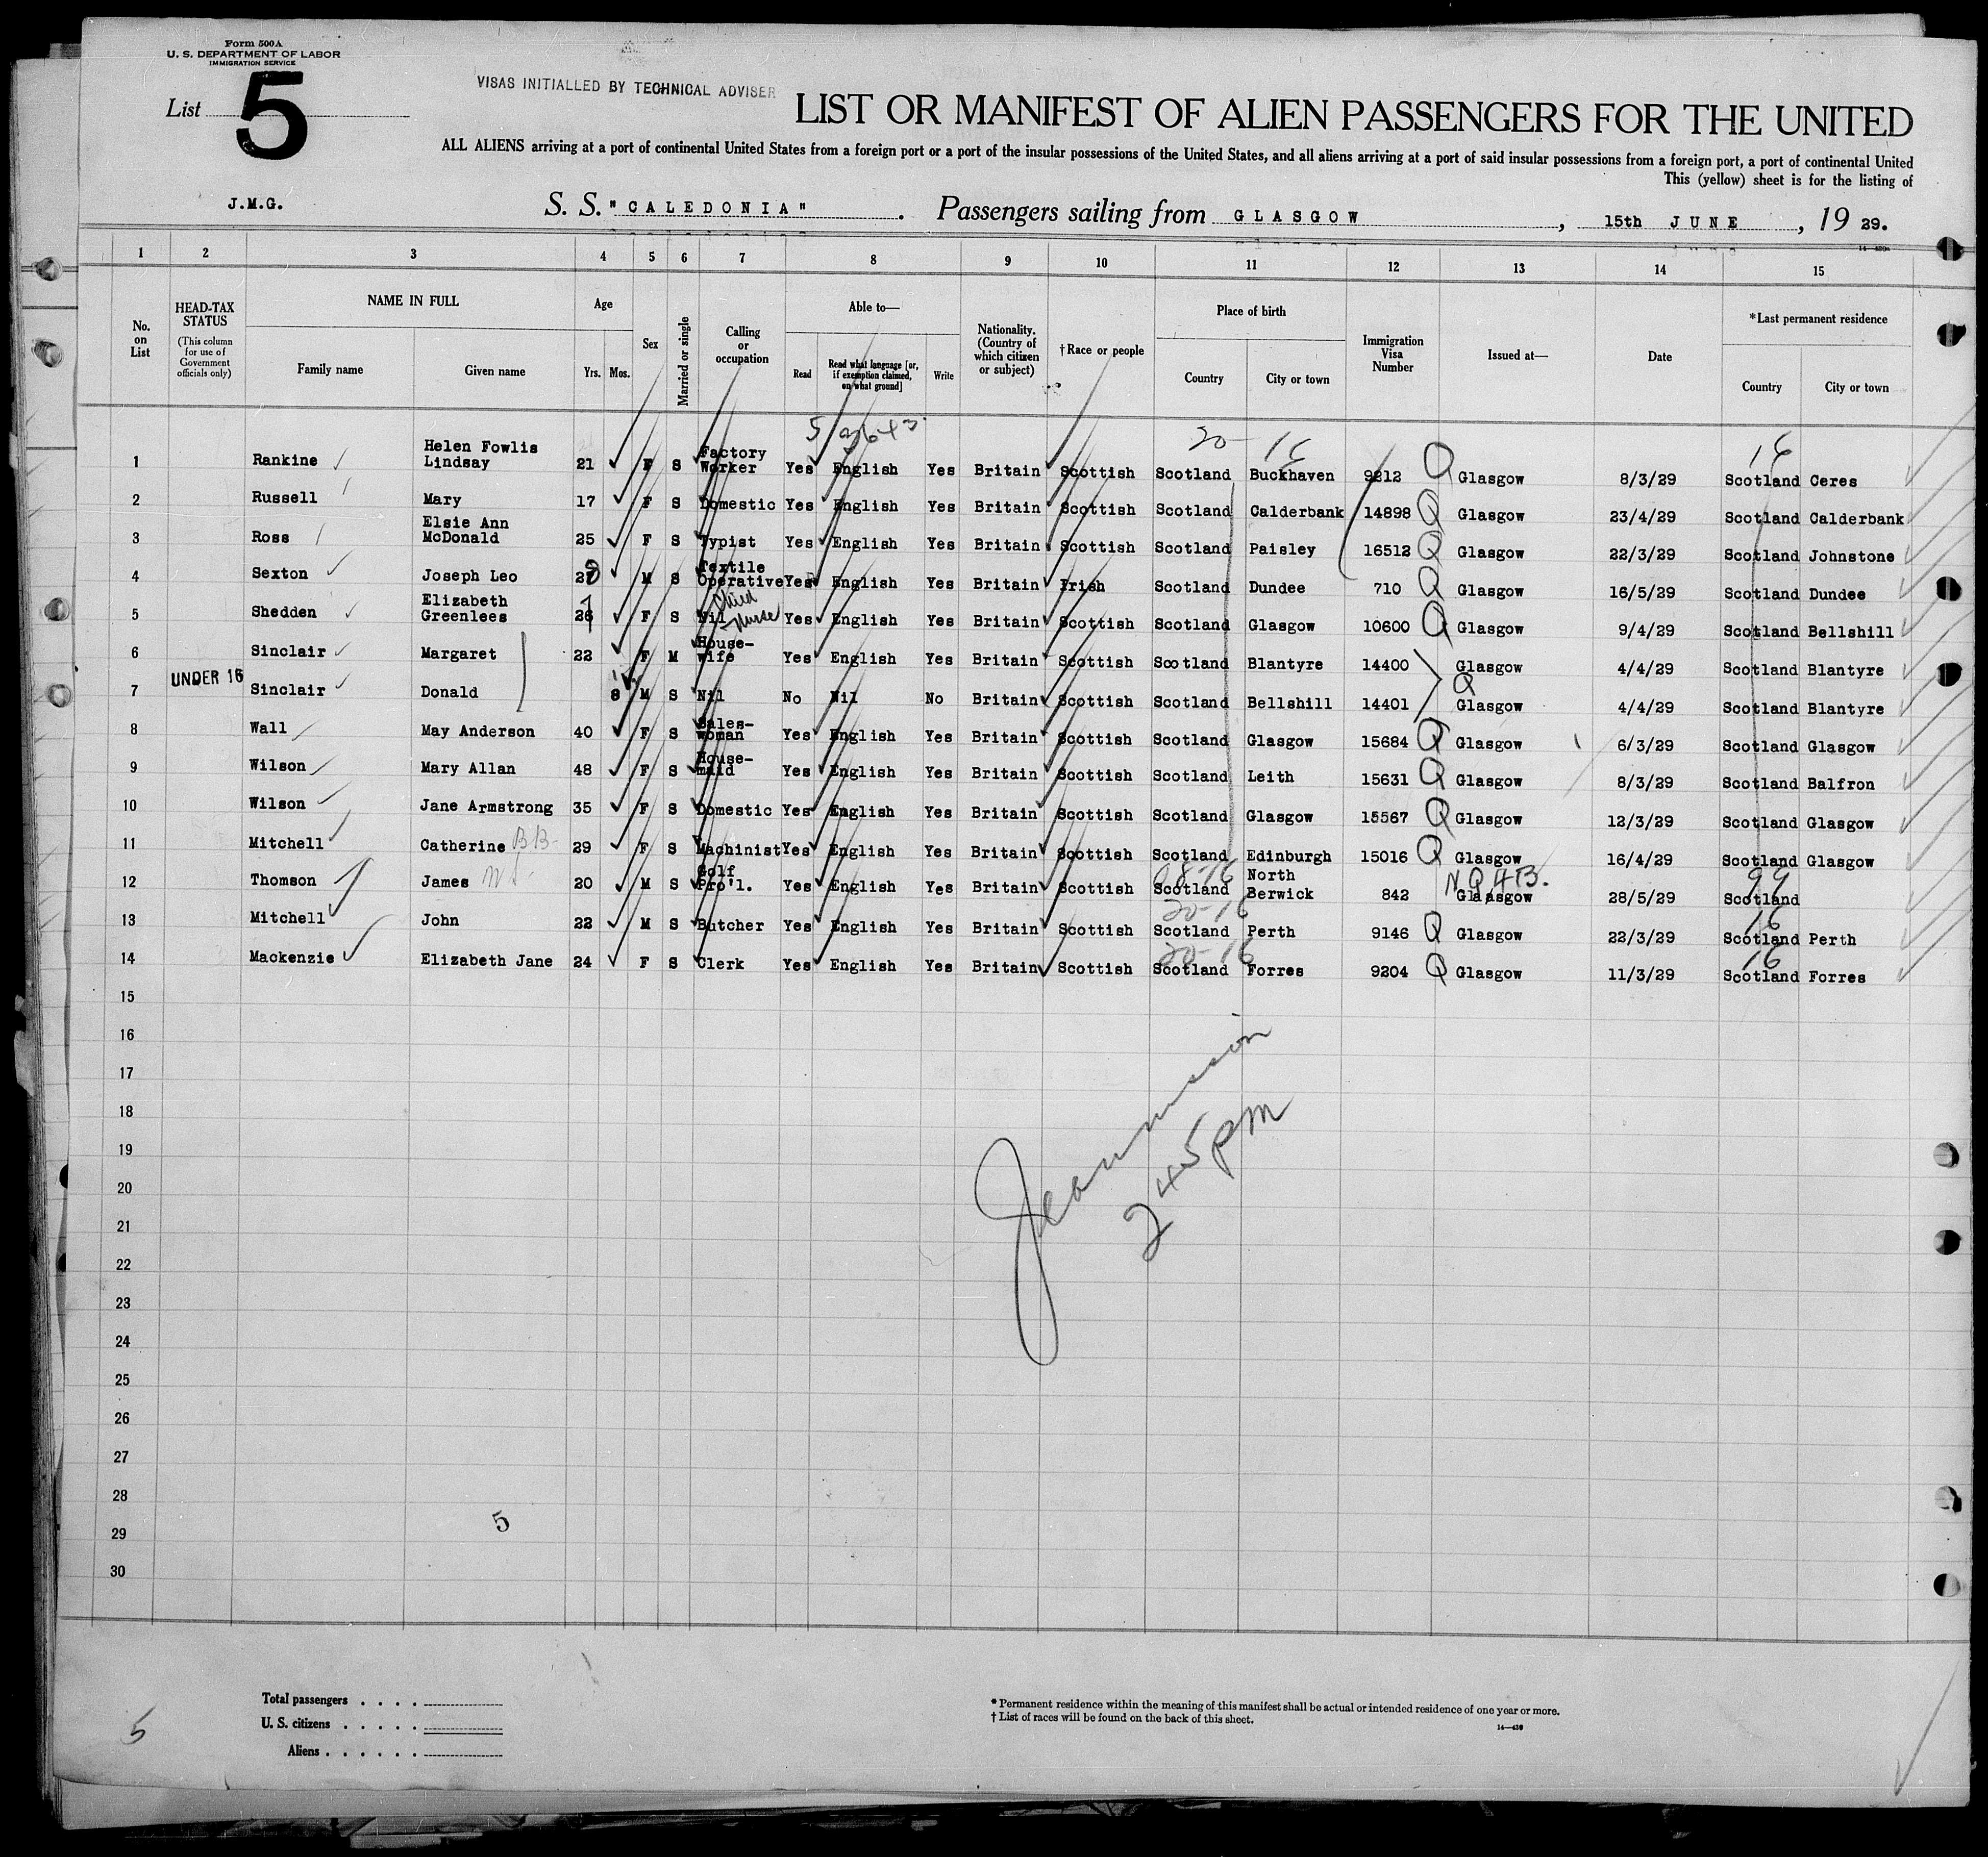 Form 500A
U. S. DEPARTMENT OF LABOR
IMMIGRATION SERVICE
List 5
VISAS INITIALLED BY TECHNICAL ADVISER
LIST OR MANIFEST OF ALIEN PASSENGERS FOR THE UNITED
ALL ALIENS arriving at a port of continental United States from a foreign port or a port of the insular possessions of the United States, and all aliens arriving at a port of said insular possessions from a foreign port, a port of continental United
This (yellow) sheet is for the listing of
J.M.G. S. S. "CALEDONIA" . Passengers sailing from GLASGOW , 15th JUNE , 19 29.
1 2 3 4 5 6 7 8 9 10 11 12 13 14 15
No. on List
HEAD-TAX STATUS (This column for use of Government officials only)
NAME IN FULL
Family name Given name
Age
Yrs. Mos.
Sex
Married or single
Calling or occupation
Able to—
Read Read what language [or, if exemption claimed, on what ground] Write
Nationality. (Country of which citizen or subject)
†Race or people
Place of birth
Country City or town
Immigration Visa Number
Issued at—
Date
*Last permanent residence
Country City or town
5 3643 20 16 16
1 Rankine Helen Fowlis Lindsay 21 F S Factory Worker Yes English Yes Britain Scottish Scotland Buckhaven 9212 Q Glasgow 8/3/29 Scotland Ceres
2 Russell Mary 17 F S Domestic Yes English Yes Britain Scottish Scotland Calderbank 14898 Q Glasgow 23/4/29 Scotland Calderbank
3 Ross Elsie Ann McDonald 25 F S Typist Yes English Yes Britain Scottish Scotland Paisley 16512 Q Glasgow 22/3/29 Scotland Johnstone
4 Sexton Joseph Leo 28 M S Textile Operative Yes English Yes Britain Irish Scotland Dundee 710 Q Glasgow 16/5/29 Scotland Dundee
5 Shedden Elizabeth Greenlees 26 F S Nil Child Nurse Yes English Yes Britain Scottish Scotland Glasgow 10600 Q Glasgow 9/4/29 Scotland Bellshill
6 Sinclair Margaret 22 F M House-wife Yes English Yes Britain Scottish Scotland Blantyre 14400 Glasgow 4/4/29 Scotland Blantyre
7 UNDER 16 Sinclair Donald 8 M S Nil No Nil No Britain Scottish Scotland Bellshill 14401 Q Glasgow 4/4/29 Scotland Blantyre
8 Wall May Anderson 40 F S Sales-woman Yes English Yes Britain Scottish Scotland Glasgow 15684 Q Glasgow 6/3/29 Scotland Glasgow
9 Wilson Mary Allan 48 F S House-maid Yes English Yes Britain Scottish Scotland Leith 15631 Q Glasgow 8/3/29 Scotland Balfron
10 Wilson Jane Armstrong 35 F S Domestic Yes English Yes Britain Scottish Scotland Glasgow 15567 Q Glasgow 12/3/29 Scotland Glasgow
11 Mitchell Catherine BB 29 F S Machinist Yes English Yes Britain Scottish Scotland Edinburgh 15016 Q Glasgow 16/4/29 Scotland Glasgow
12 Thomson James 20 M S Golf Pro'l. Yes English Yes Britain Scottish 08-16 Scotland North Berwick 842 NQ 4B. Glasgow 28/5/29 99 Scotland
13 Mitchell John 22 M S Butcher Yes English Yes Britain Scottish 20-16 Scotland Perth 9146 Q Glasgow 22/3/29 16 Scotland Perth
14 Mackenzie Elizabeth Jane 24 F S Clerk Yes English Yes Britain Scottish 20-16 Scotland Forres 9204 Q Glasgow 11/3/29 16 Scotland Forres
15
16
17
18
19
20
21
22
23
24
25
26
27
28
29
30
245 pm
5
Total passengers . . . .
U. S. citizens . . . . .
Aliens . . . . . .
5
* Permanent residence within the meaning of this manifest shall be actual or intended residence of one year or more.
† List of races will be found on the back of this sheet.
14—430